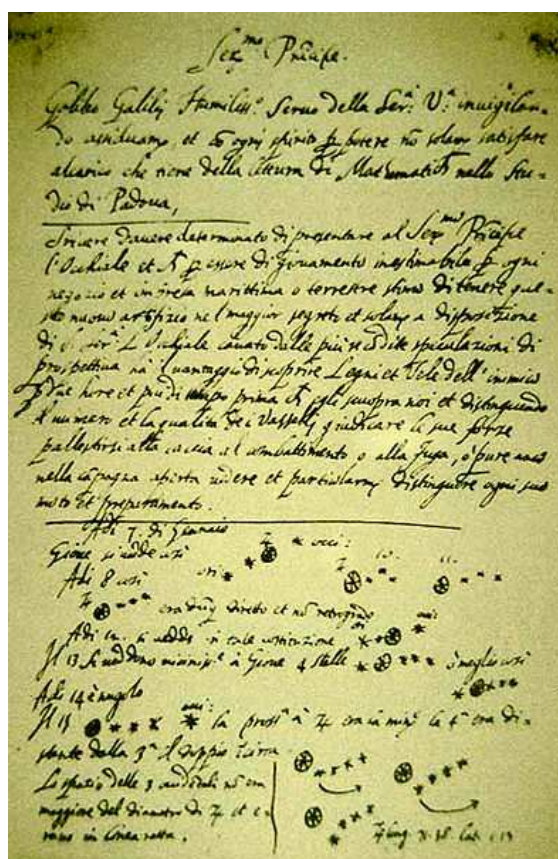 Ser.mo Principe.
Galileo Galilej Humiliss.o Servo della Ser.a V.a invigilan-
do assiduam.te, et co ogni spirito p potere no solam.te satisfare
alcarico che tiene della lettura di Matematich nello Stu-
dio di Padova,
Scrivere d'avere determinato di presentare al Ser.mo Principe
l'Occhiale et p essere di giovamento inestimabile p ogni
negozio et impresa marittima o terrestre stimo di tenere que-
sto nuovo artifizio nel maggior segreto et solam.te a disposizione
di S. Ser.a L'Occhiale cavato dalle più recondite speculazioni di
prospettiva ha il vantaggio di scoprire Legni et Vele dell'inimico
p due hore et più di tempo prima ch egli scuopra noi et distinguendo
il numero et la qualita de i Vasselli giudicare le sue forze
pallestirsi alla caccia al combattimento o alla fuga, o pure anco
nella capagna aperta vedere et particolarm.te distinguere ogni suo
moto et preparamento.
Adi 7. di Gennaio
Gione si vede così
Adi 8 così ori: occi: 10. 11.
era dunq diretto et no retrogrado
Adi 12. si vedde in tale costituzione
Il 13 si veddono viciniss.e à Giove 4 stelle ò meglio così
Adi 14 è nugolo
Il 15 occi: la pross.a à era la min.e la 4.a era di-
stante dalla 3.a il doppio circa
Lo spatio delle 3 occidentali no era
maggiore del diametro di et e-
rano in linea retta.
long. lat.